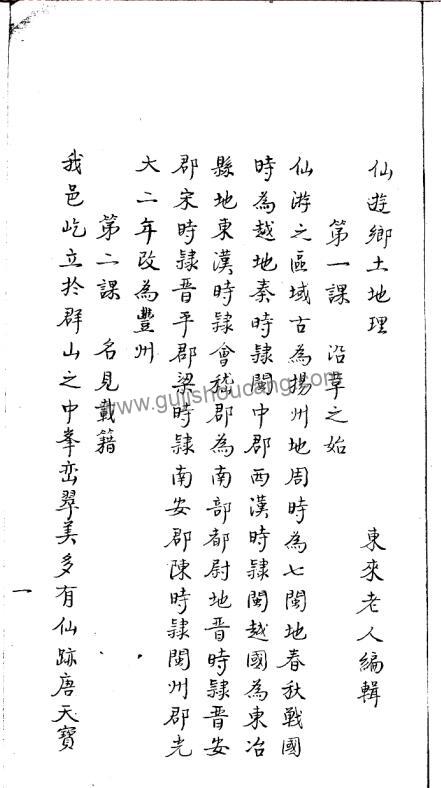 仙遊鄉土地理
東來老人編輯
第一課　沿革之始
仙游之區域古為揚州地周時為七閩地春秋戰國
時為越地秦時隸閩中郡西漢時隸閩越國為東冶
縣地東漢時隸會嵇郡為南部都尉地晉時隸晉安
郡宋時隸晉平郡梁時隸南安郡陳時隸閩州郡光
大二年改為豐州
第二課　名見載籍
我邑屹立於群山之中峯巒翠美多有仙跡唐天寶
一
www.gujishoucang.com